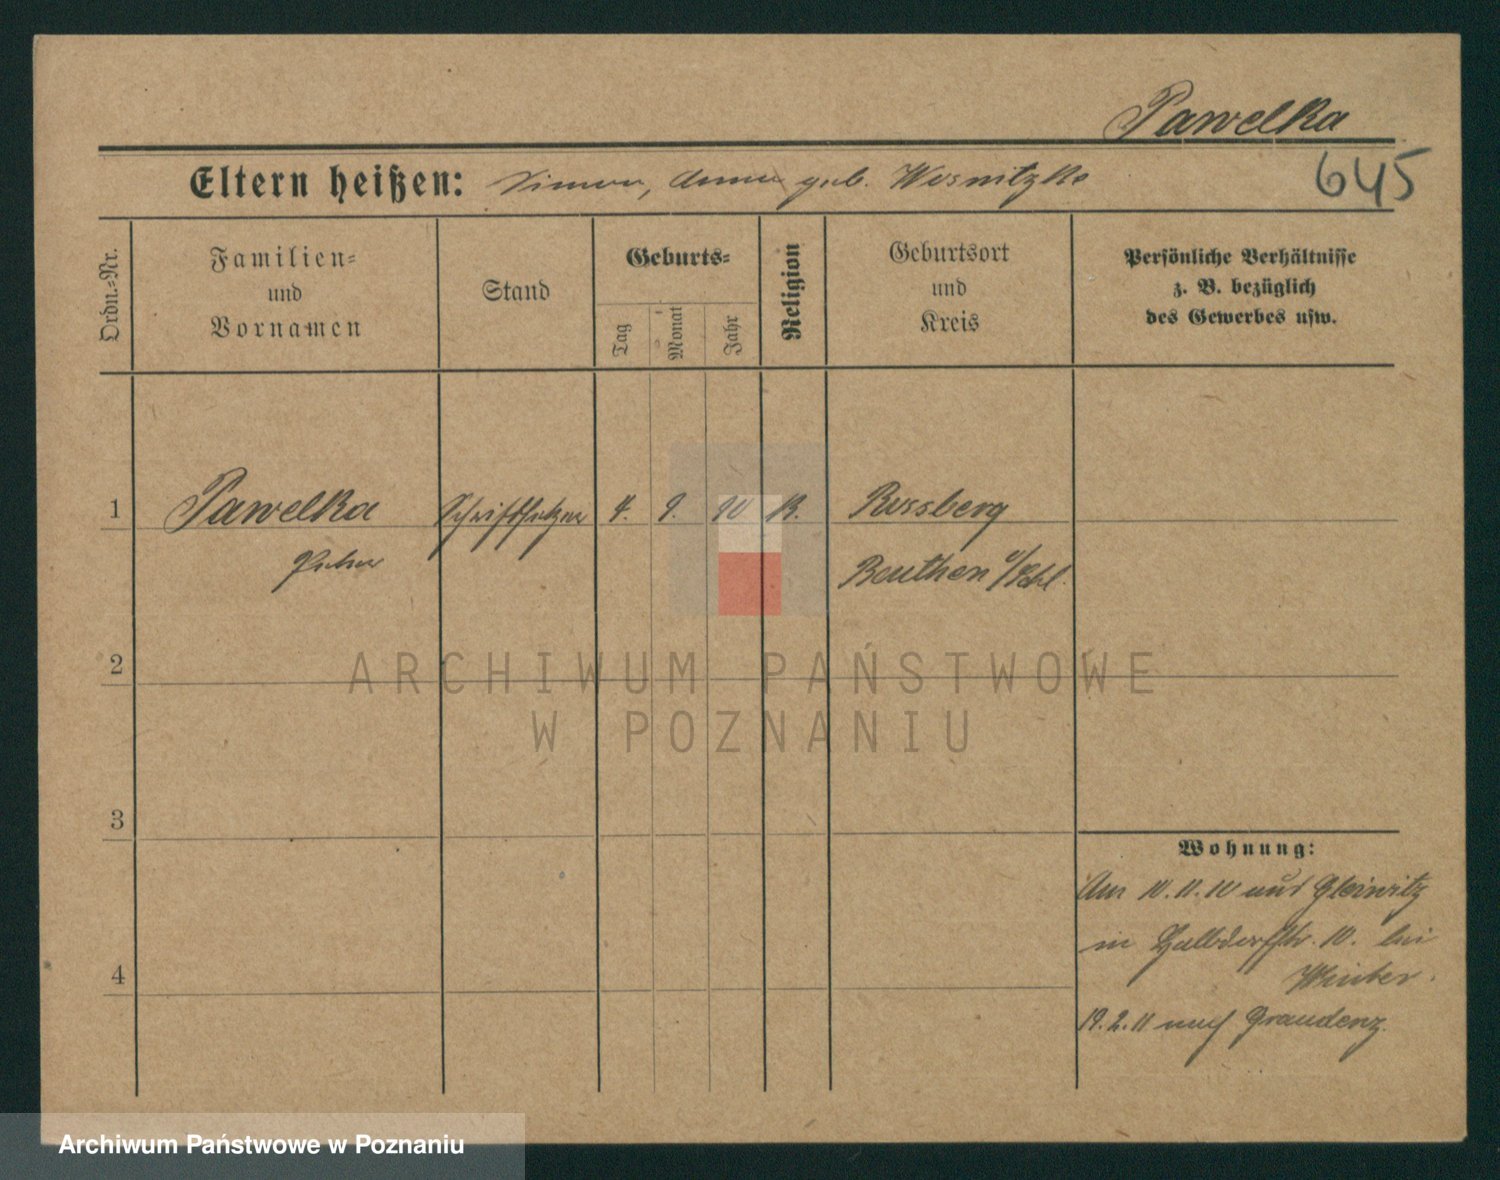 Pawelka
645
Eltern heißen: Simon, Anna geb. Wosnitzka
Ordn.=Nr.
Familien=
und
Vornamen
Stand
Geburts=
Tag
Monat
Jahr
Religion
Geburtsort
und
Kreis
Persönliche Verhältnisse
z. B. bezüglich
des Gewerbes usw.
1 Pawelka Schriftsetzer 4. 9. 90 K. Rossberg
Peter Beuthen o/Schl.
2
3
4
Wohnung:
Am 10.11.10 aus Gleiwitz
in Halbdorfstr. 10. bei
Winter.
19.2.11 nach Graudenz.
ARCHIWUM PAŃSTWOWE
W POZNANIU
Archiwum Państwowe w Poznaniu